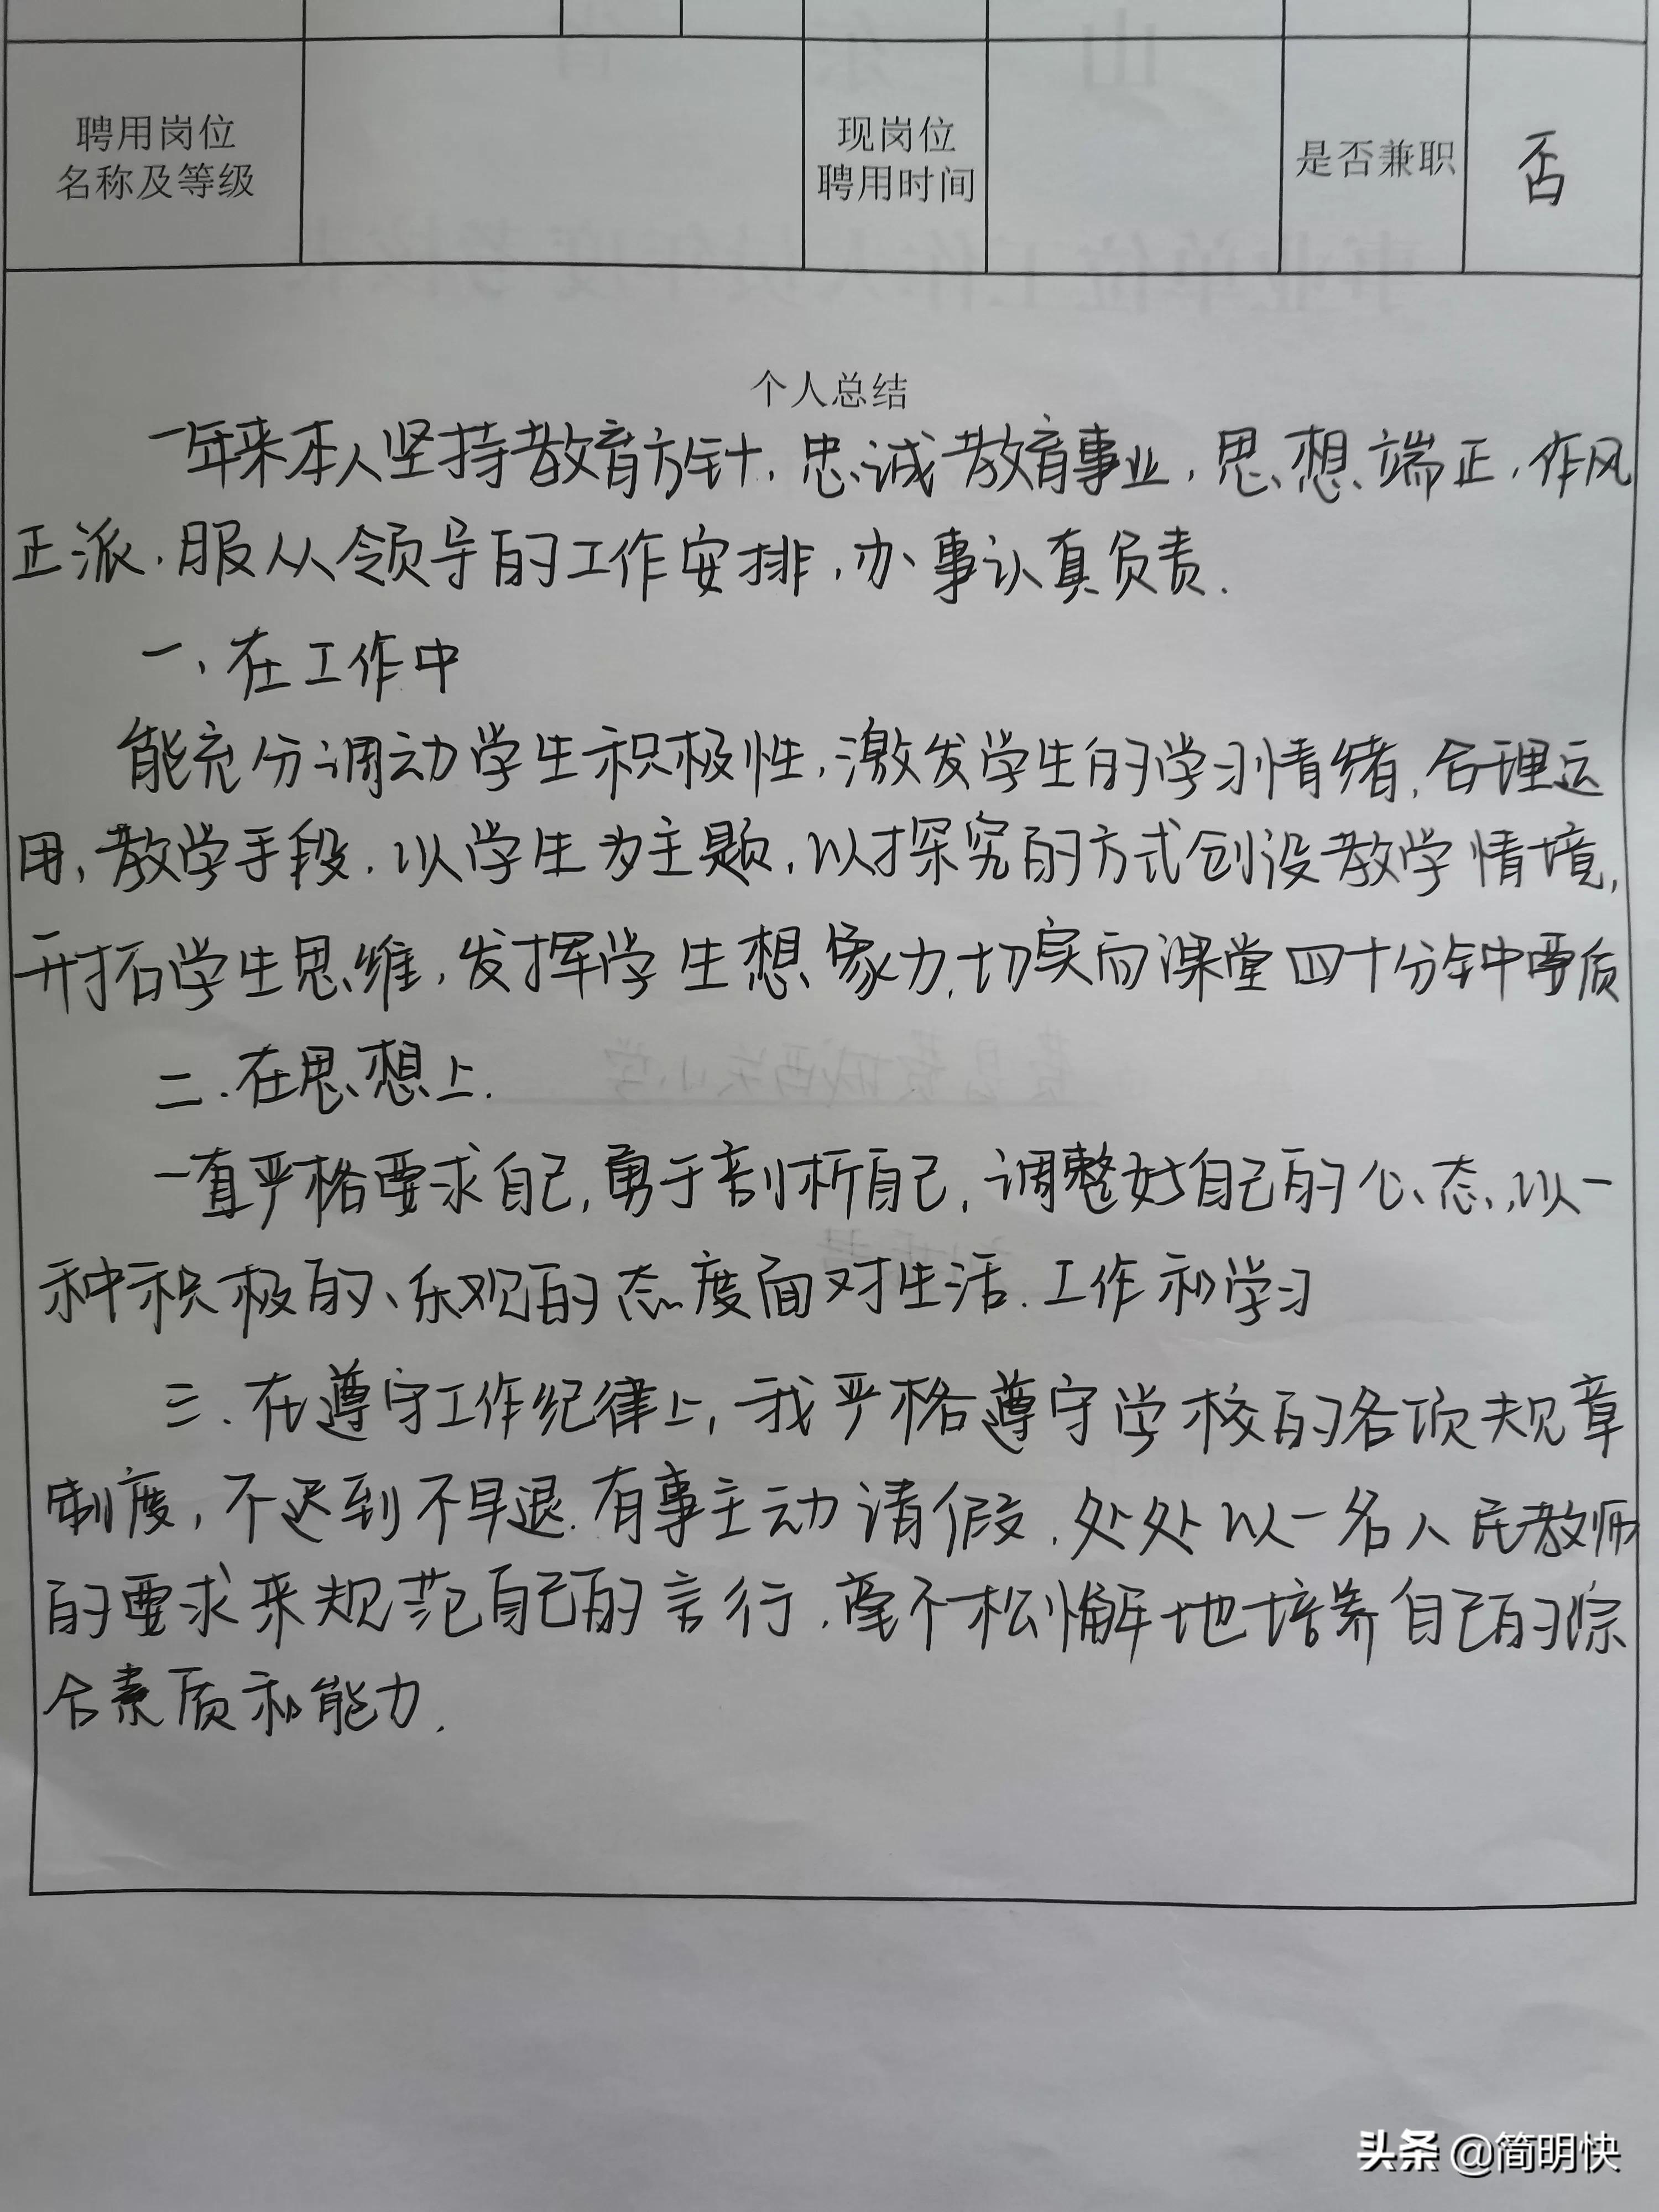 聘用岗位
名称及等级
现岗位
聘用时间
是否兼职
否
个人总结
一年来本人坚持教育方针,忠诚教育事业,思想端正,作风
正派,服从领导的工作安排,办事认真负责.
一、在工作中
能充分调动学生积极性,激发学生的学习情绪,合理运
用,教学手段,以学生为主题,以探究的方式创设教学情境,
开拓学生思维,发挥学生想象力,切实向课堂四十分钟要质
二.在思想上.
一直严格要求自己,勇于剖析自己,调整好自己的心态,以一
种积极的、乐观的态度面对生活.工作和学习
三.在遵守工作纪律上,我严格遵守学校的各项规章
制度,不迟到不早退.有事主动请假,处处以一名人民教师
的要求来规范自己的言行,毫不松懈地培养自己的综
合素质和能力.
头条 @简明快